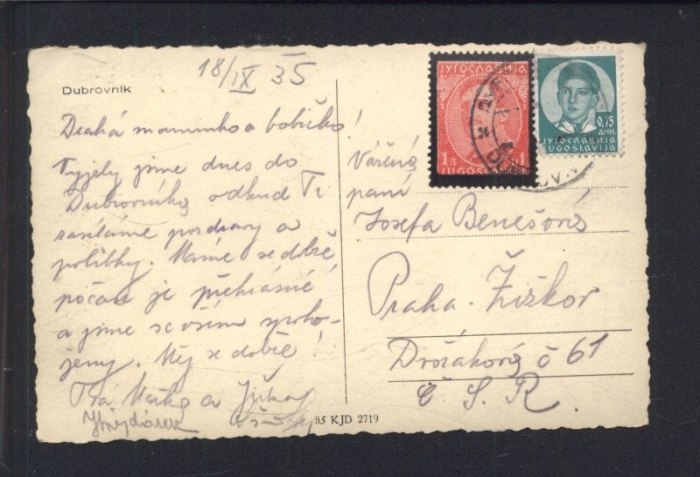 18/IX 35
Dubrovnik
Drahá maminko a babičko!
Vyjely jsme dnes do
Dubrovníka odkud Ti
zasíláme pozdravy a
polibky. Máme se dobře
počasí je překrásné
a jsme se vším spoko-
jeny. Měj se dobře!
Tvá Mařka a Jiřka
85 KJD 2719
ЈУГОСЛАВИЈА
1 1
JUGOSLAVIJA
0,75
ДИН.
ЈУГОСЛАВИЈА
JUGOSLAVIJA
Vážená
paní
Josefa Benešová
Praha - Žižkov
Dvořákova č 61
Č. S. R.